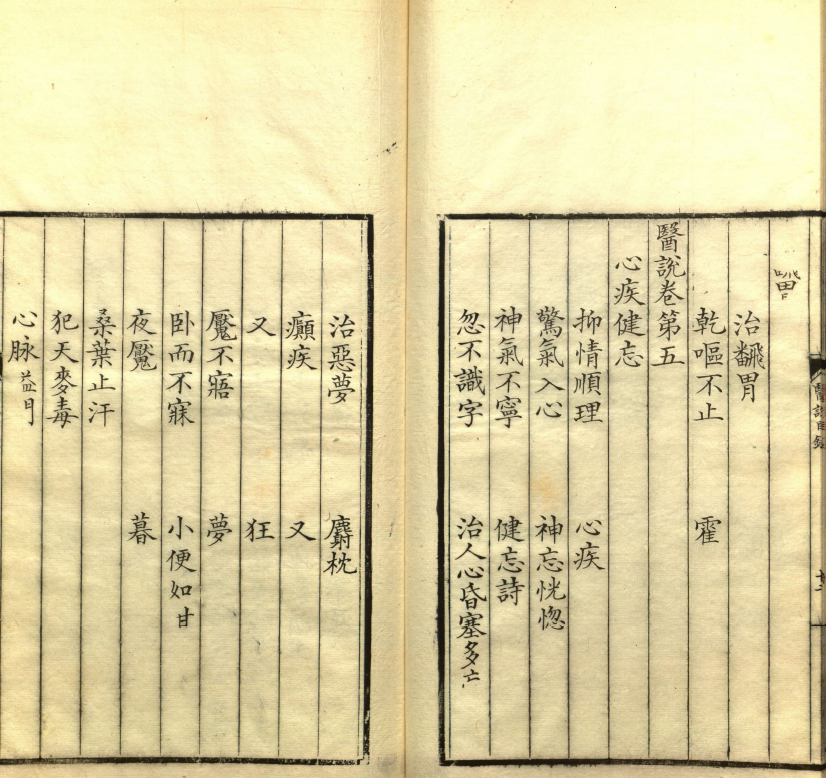 醫說目錄
治飜胃
乾嘔不止　霍
醫說卷第五
心疾健忘
抑情順理　心疾
驚氣入心　神忘恍惚
神氣不寧　健忘詩
忽不識字　治人心昏塞多
治惡夢　麝枕
癲疾　又
又　狂
魘不寤　夢
卧而不寐　小便如甘
夜魘　暮
桑葉止汗
犯天麥毒
心脉益